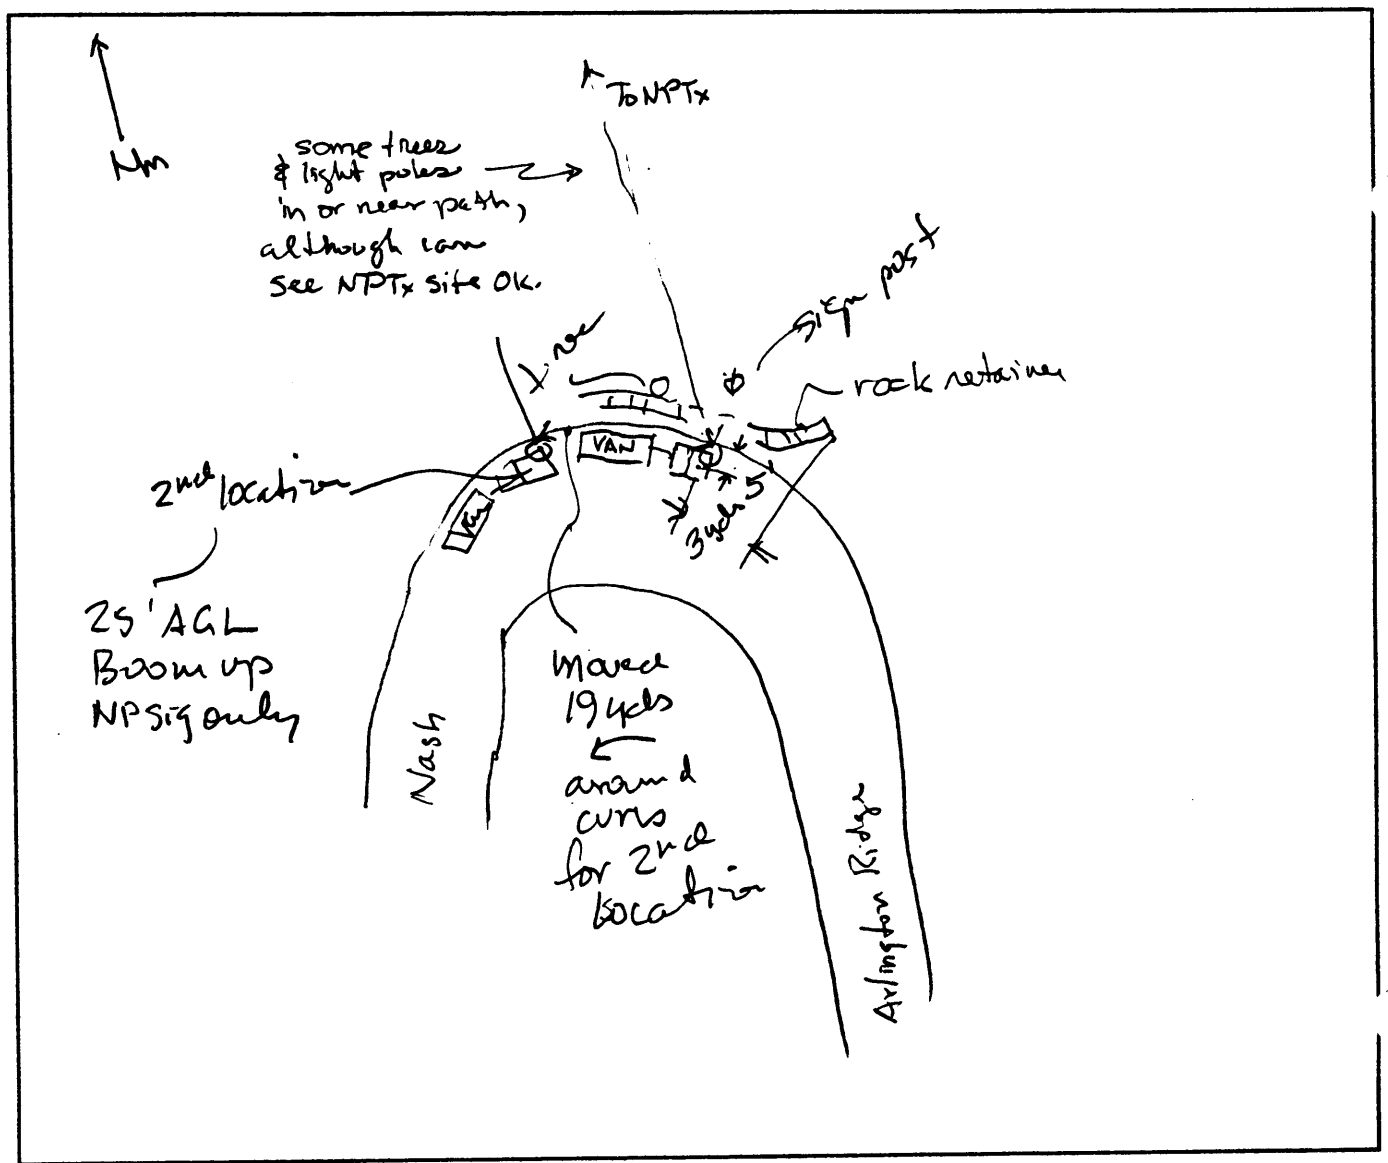 Nm
To NPTx
some trees
& light poles
in or near path,
although can
see NPTx site OK.
sign post
rock retainer
VAN
2nd location
Van
5'
3 yds
25' AGL
Boom up
NP sig only
moved
19 yds
around
curve
for 2nd
location
Nash
Arlington Ridge